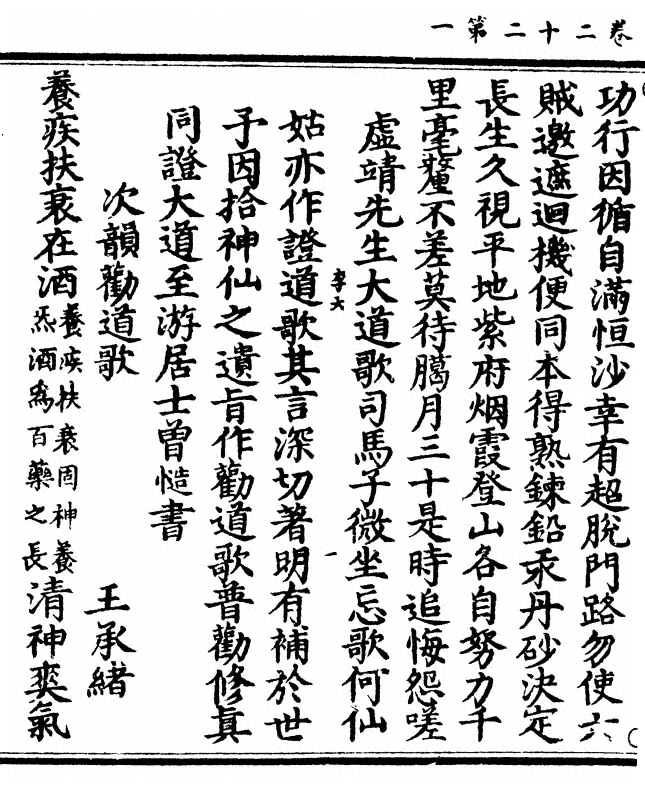 卷二十二第一
功行因循自滿恒沙幸有超脫門路勿使六
賊邀遮迴機便同本得熟鍊鉛汞丹砂決定
長生久視平地紫府烟霞登山各自努力千
里毫釐不差莫待臈月三十是時追悔怨嗟
虛靖先生大道歌司馬子微坐忘歌何仙
李六
姑亦作證道歌其言深切著明有補於世
予因拾神仙之遺旨作勸道歌普勸修真
同證大道至游居士曾慥書
次韻勸道歌 王承緒
養疾扶衰在酒養疾扶衰固神養炁酒為百藥之長清神爽氣